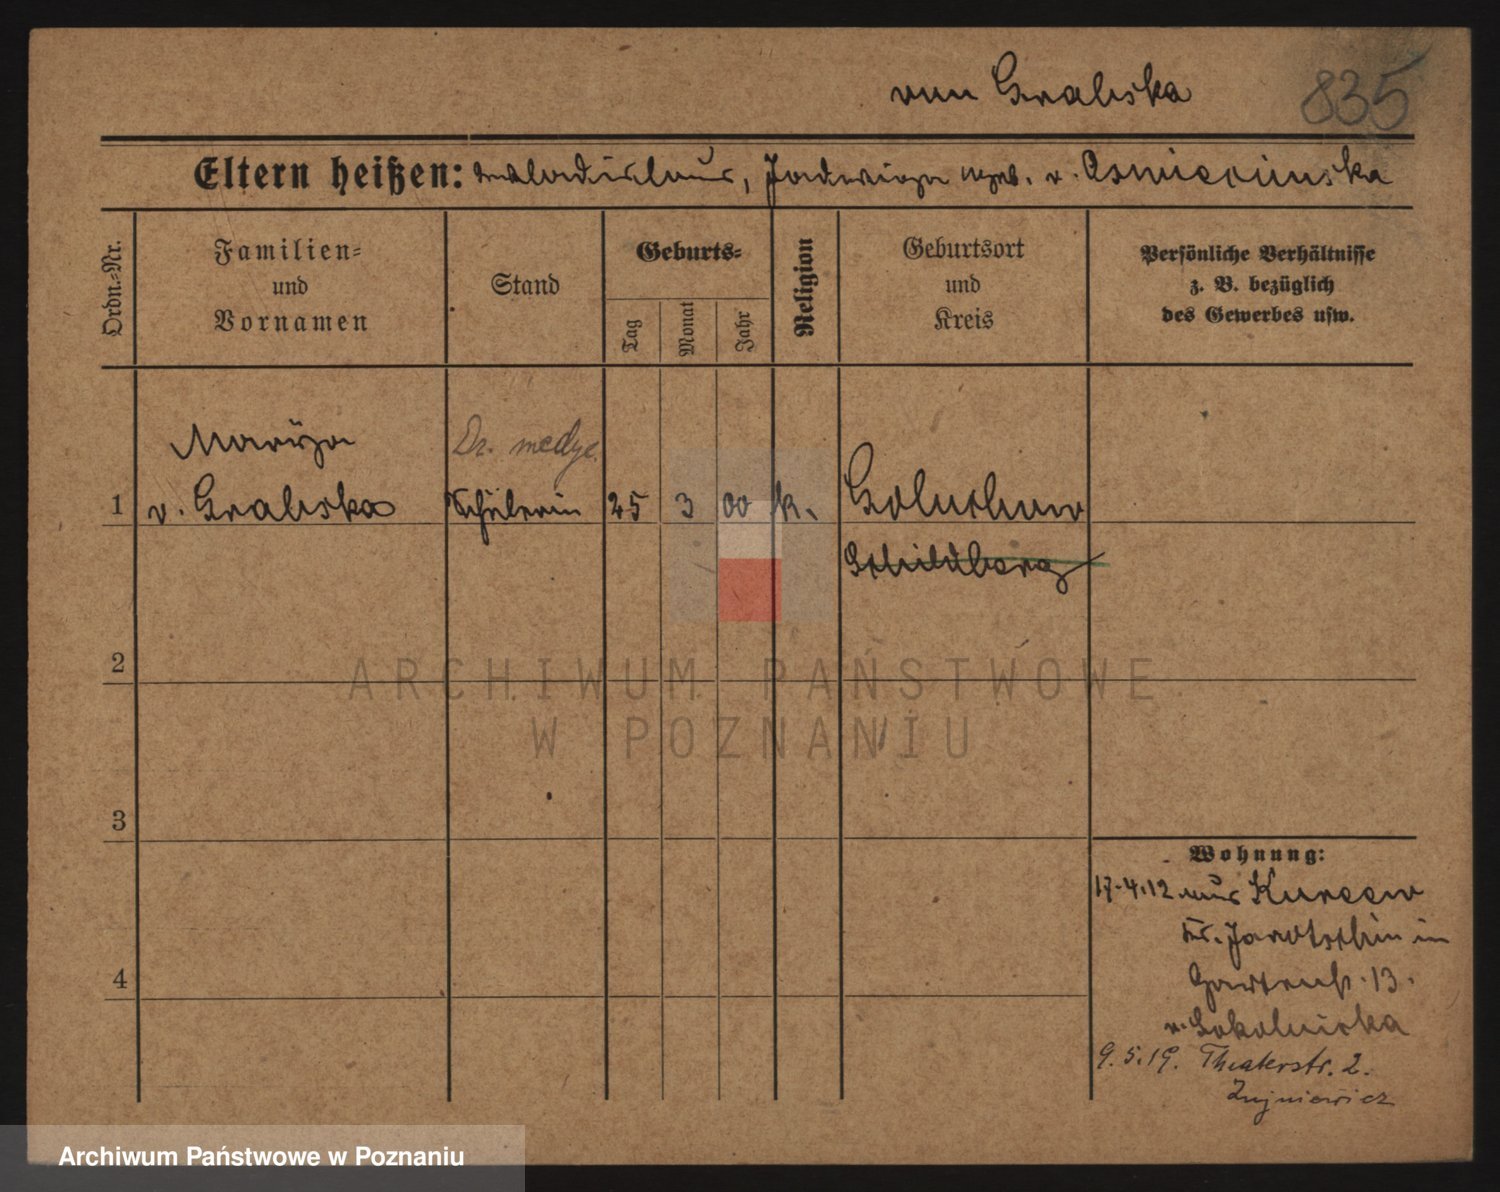 von Grabska
835
Eltern heißen: Wladislaus, Jadwiga geb. v. Osmiecinska
Ordn.-Nr.
Familien-
und
Vornamen
Stand
Geburts-
Tag
Monat
Jahr
Religion
Geburtsort
und
Kreis
Persönliche Verhältnisse
z. B. bezüglich
des Gewerbes usw.
Maryja
Dr. medyc.
1 v. Grabska Schülerin 25 3 00 k. Goluchow
Schildberg
2
ARCHIWUM PAŃSTWOWE
W POZNANIU
3
Wohnung:
17.4.12 aus Kurcew
Kr. Jarotschin in
Gartenstr. 13.
4
v. Sokolnicka
9.5.19. Theaterstr. 2.
Archiwum Państwowe w Poznaniu